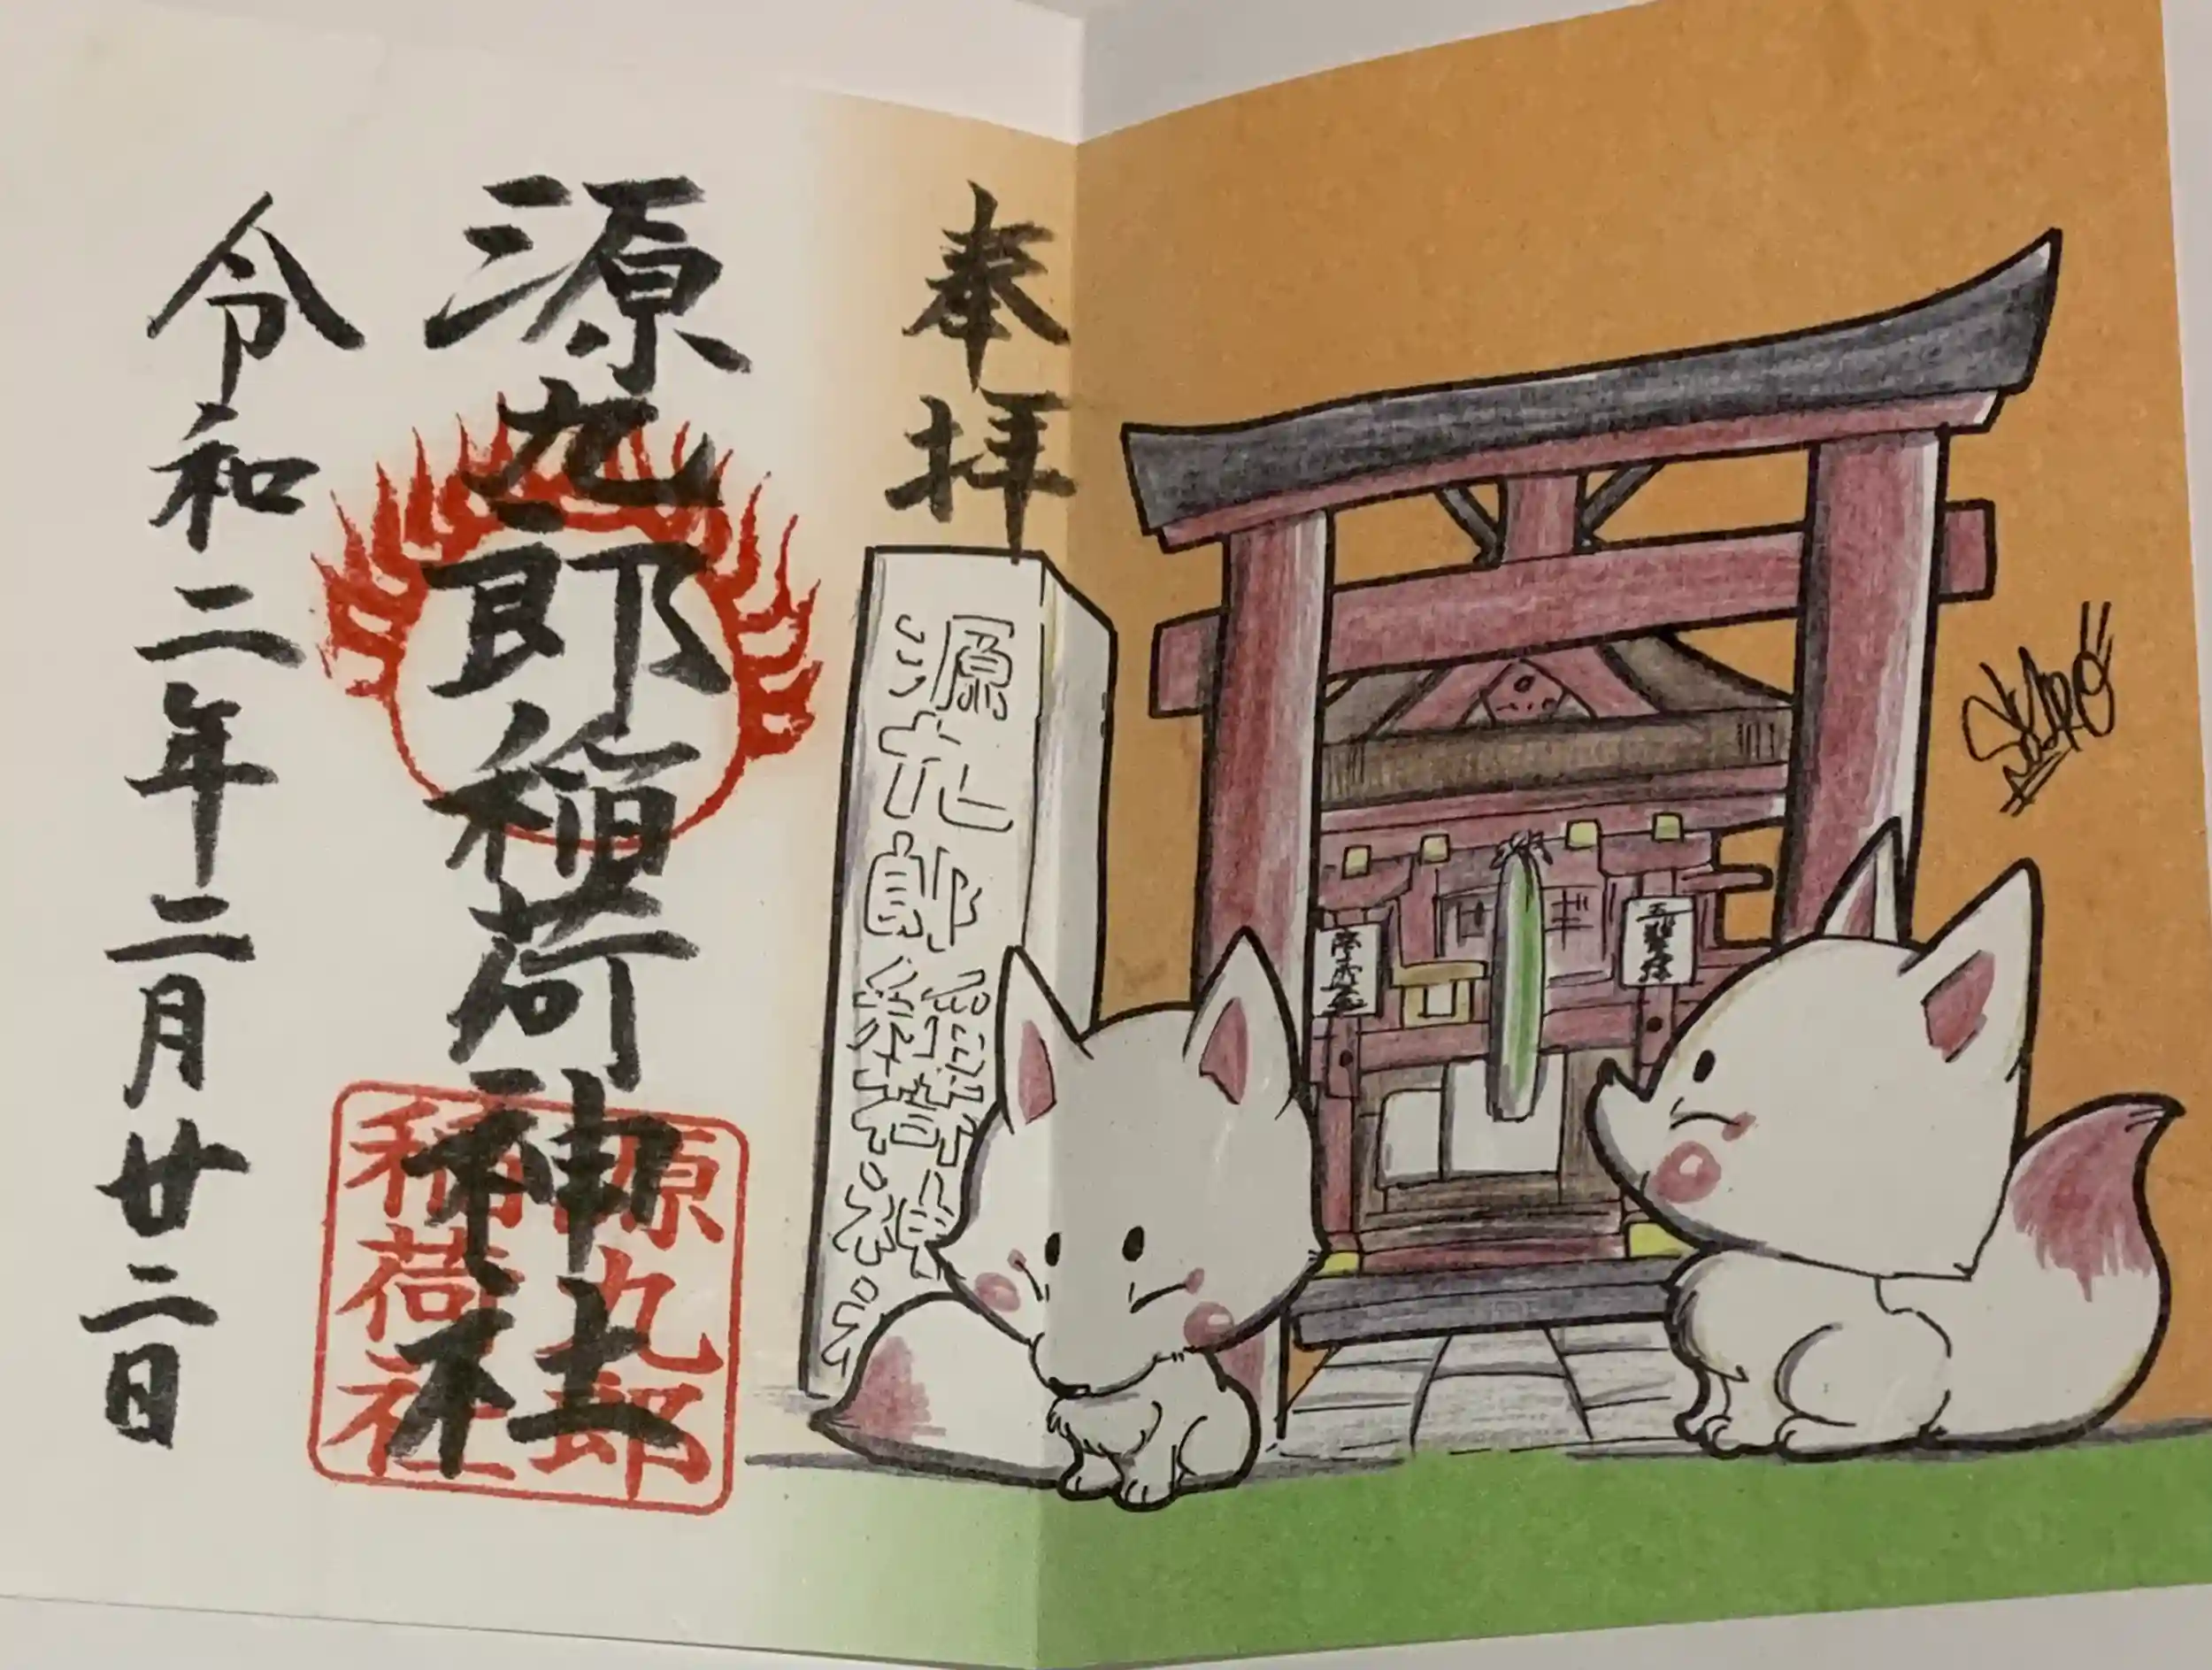 奉拝
源九郎稲荷神社
令和二年二月廿二日
源九郎
稲荷社
源九郎